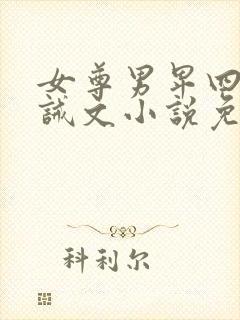 女尊男卑四
诫文小说免
科利尔